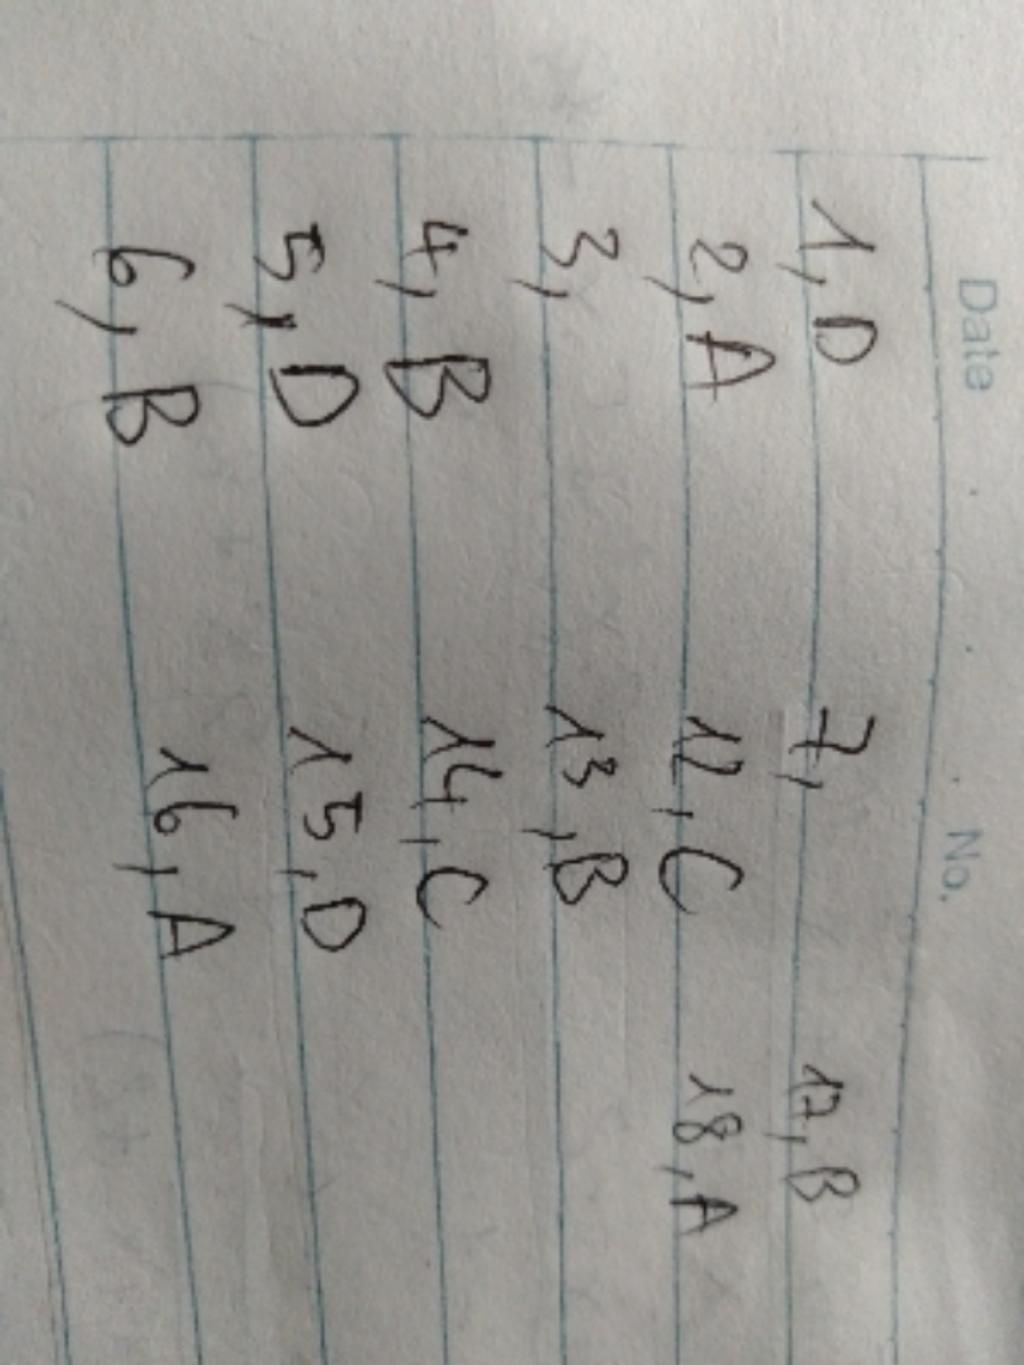 Date No.
1, D 7, 17, B
2, A 12, C 18, A
3, 13, B
4, B 14, C
5, D 15, D
6, B 16, A